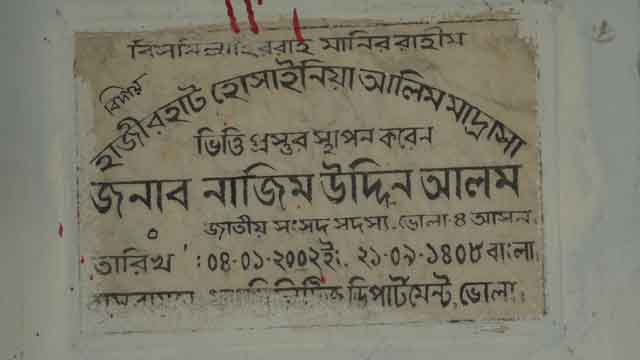 বিসমিল্লাহির রাহমানির রাহীম
হাজীরহাট হোসাইনিয়া আলিম মাদ্রাসা
ভিত্তি প্রস্তুর স্থাপন করেন
জনাব নাজিম উদ্দিন আলম
জাতীয় সংসদ সদস্য, ভোলা-৪ আসন।
তারিখ : ০৪-০১-২০০২ইং, ২১-০৯-১৪০৮ বাংলা
ডিপার্টমেন্ট, ভোলা।